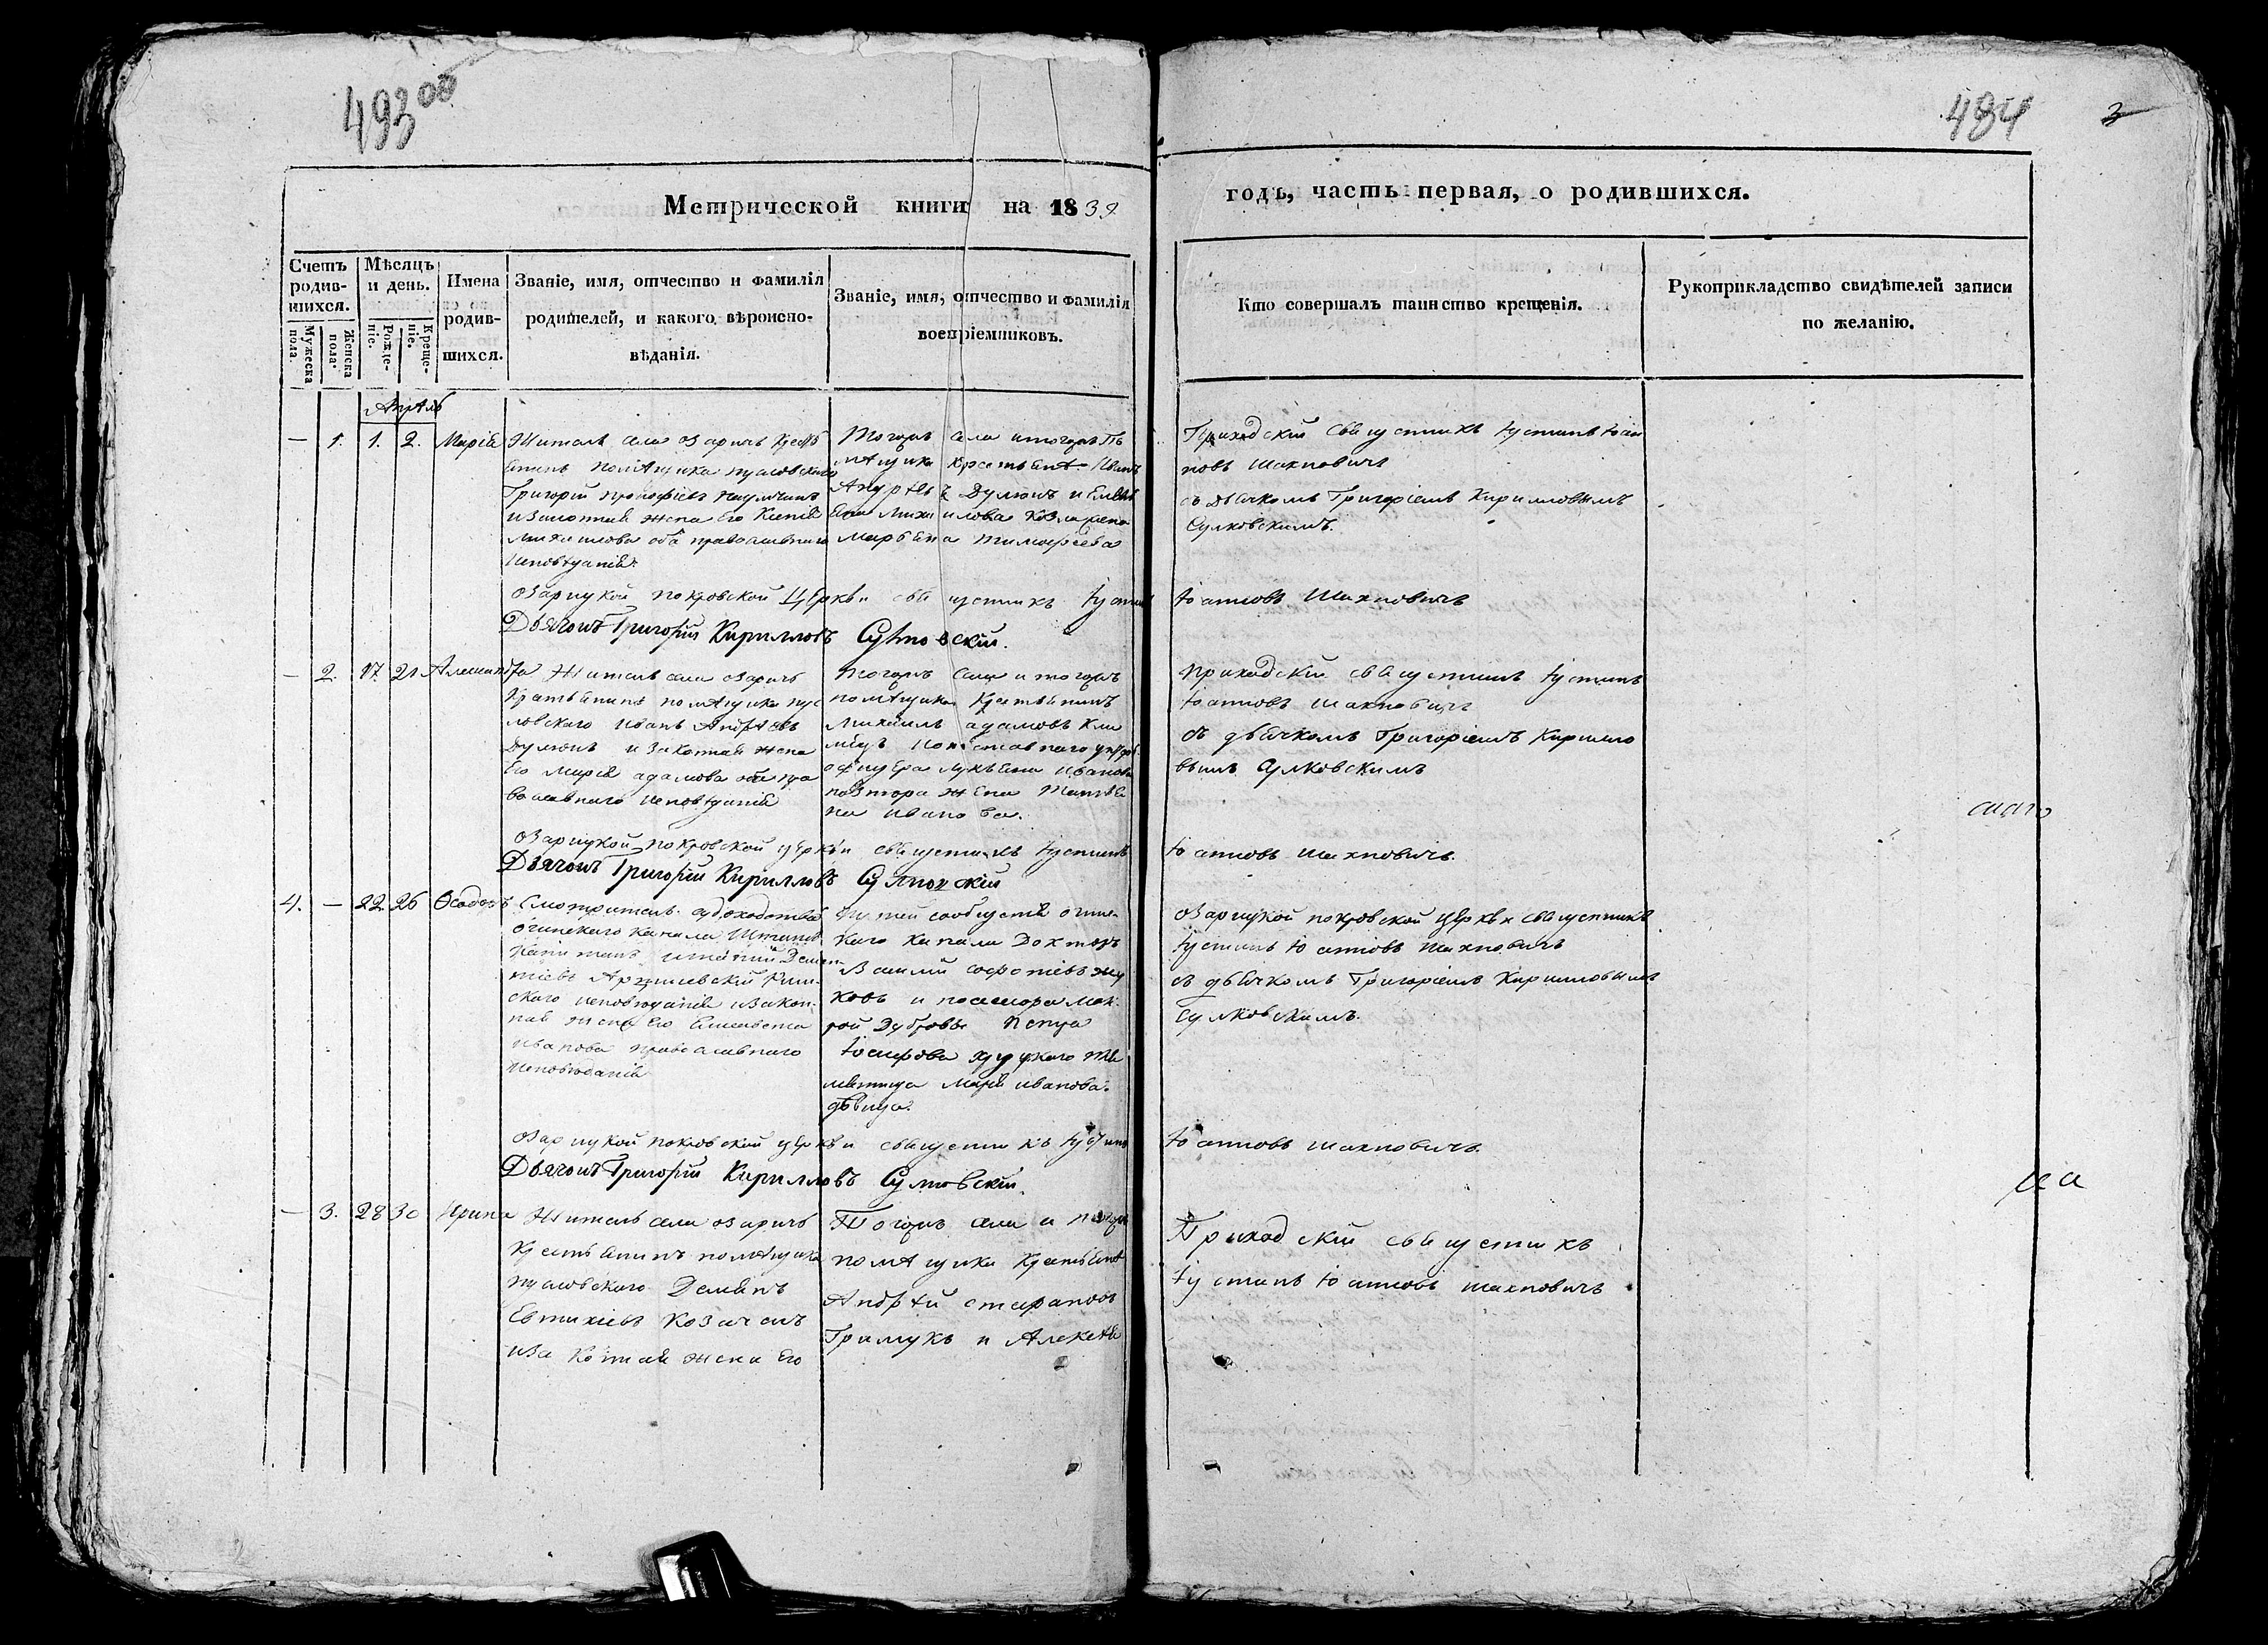 493 об
494
3
Метрической книги на 1839
годъ, часть первая, о родившихся.
Счетъ родив-шихся.
Мужеска пола.
Женска пола.
Мѣсяцъ и день.
Рожде-ніе.
Креще-ніе.
Имена родив-шихся.
Званіе, имя, отчество и фамилія
родителей, и какого вѣроиспо-
вѣданія.
Званіе, имя, отчество и фамилія
воспріемниковъ.
Кто совершалъ таинство крещенія.
Рукоприкладство свидѣтелей записи
по желанію.
Апрѣль
— 1. 1. 2. Марія
Житель села Озаричъ крестъ
янинъ помѣщика пуловскаго
Григорій Прокофіевъ
и законная жена Его Ксенія
Михайлова оба православнаго
исповѣданія.
Тогожъ села и тогожъ по
мѣщика Иванъ
Андрѣевъ Дулюкъ и
Тимофеева
Приходскій священникъ Іустинъ Іоан
новъ Шахновичъ
съ дьячкомъ Григоріемъ Кирилловымъ
Сулковскимъ.
Озарицкой Покровской Церкви священникъ Іустинъ Іоанновъ Шахновичъ
Дьячокъ Григорій Кирилловъ Сулковскій.
— 2. 17. 21 Александра
Житель села Озаричъ
крестьянинъ помѣщика пус
ловскаго Иванъ Андрѣевъ
Дулюкъ и законная жена
Его Марія Адамова оба пра
вославнаго исповѣданія
Тогожъ села и тогожъ
помѣщика крестьянинъ
Михаилъ Адамовъ Кли
мецъ
офицера Иванова
жена Татья
на Иванова.
Приходскій священникъ Іустинъ
Іоанновъ Шахновичъ
съ дьячкомъ Григоріемъ Кирилло
вымъ Сулковскимъ
Озарицкой Покровской церкви священникъ Іустинъ Іоанновъ Шахновичъ.
Дьячокъ Григорій Кирилловъ Сулковскій
4. — 22 26 Ѳеодоръ
Смотритель судоходства
огинскаго канала Штабсъ
Капитанъ Демен
тіевъ Рим-
скаго исповѣданія и закон-
ная жена Его Елисавета
Иванова православнаго
исповѣданія
Путей сообщенія огин-
скаго канала Докторъ
Василій Жу
ковъ и
рой Дубровы Петра
Іосифова
Марія Иванова
дѣвица.
Озарицкой Покровской церкви священникъ
Іустинъ Іоанновъ Шахновичъ
съ дьячкомъ Григоріемъ Кирилловымъ
Сулковскимъ.
Озарицкой Покровской церкви священникъ Іустинъ Іоанновъ Шахновичъ.
Дьячокъ Григорій Кирилловъ Сулковскій.
— 3. 28 30 Ирина
Житель села Озаричъ
крестьянинъ помѣщика
пуловскаго Демянъ
Евтихіевъ Козачекъ
и законная жена Его
Тогожъ села и тогожъ
помѣщика крестьяне
Андрѣй Стефановъ
Гримукъ и Алексѣя
Приходскій священникъ
Іустинъ Іоанновъ Шахновичъ